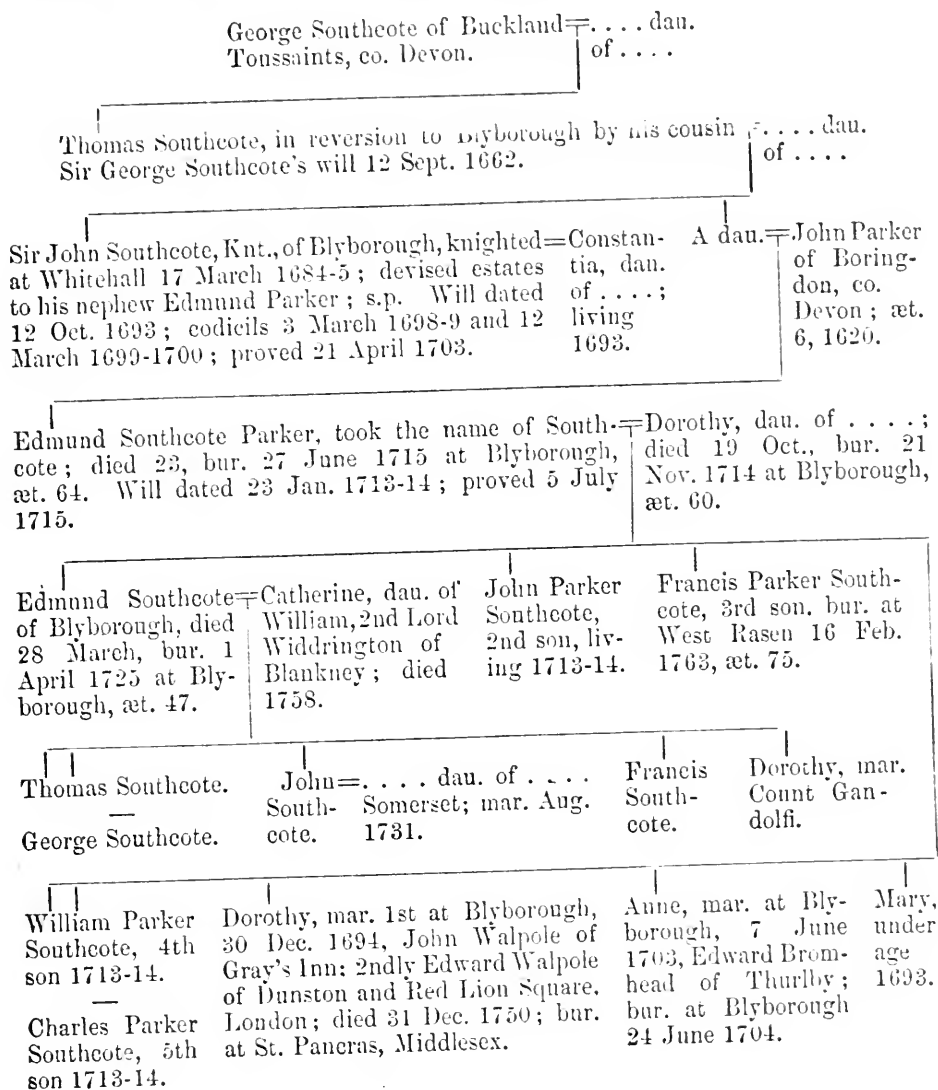 George Southcote of Buckland=. . . . dau.
Toussaints, co. Devon. of . . . .
Thomas Southcote, in reversion to Blyborough by his cousin =. . . . dau.
Sir George Southcote's will 12 Sept. 1662. of . . . .
Sir John Southcote, Knt., of Blyborough, knighted=Constan-
at Whitehall 17 March 1684-5 ; devised estates tia, dau.
to his nephew Edmund Parker ; s.p. Will dated of . . . . ;
12 Oct. 1693 ; codicils 3 March 1698-9 and 12 living
March 1699-1700 ; proved 21 April 1703. 1693.
A dau.=John Parker
of Boring-
don, co.
Devon ; æt.
6, 1620.
Edmund Southcote Parker, took the name of South-
cote ; died 23, bur. 27 June 1715 at Blyborough,
æt. 64. Will dated 23 Jan. 1713-14 ; proved 5 July
1715.
=Dorothy, dau. of . . . . ;
died 19 Oct., bur. 21
Nov. 1714 at Blyborough,
æt. 60.
Edmund Southcote
of Blyborough, died
28 March, bur. 1
April 1725 at Bly-
borough, æt. 47.
=Catherine, dau. of
William, 2nd Lord
Widdrington of
Blankney ; died
1758.
John Parker
Southcote,
2nd son, liv-
ing 1713-14.
Francis Parker South-
cote, 3rd son. bur. at
West Rasen 16 Feb.
1763, æt. 75.
Thomas Southcote.
—
George Southcote.
John=. . . . dau. of . . . .
South- Somerset; mar. Aug.
cote. 1731.
Francis
South-
cote.
Dorothy, mar.
Count Gan-
dolfi.
William Parker
Southcote, 4th
son 1713-14.
—
Charles Parker
Southcote, 5th
son 1713-14.
Dorothy, mar. 1st at Blyborough,
30 Dec. 1694, John Walpole of
Gray's Inn; 2ndly Edward Walpole
of Dunston and Red Lion Square,
London ; died 31 Dec. 1750 ; bur.
at St. Pancras, Middlesex.
Anne, mar. at Bly-
borough, 7 June
1703, Edward Brom-
head of Thurlby ;
bur. at Blyborough
24 June 1704.
Mary,
under
age
1693.